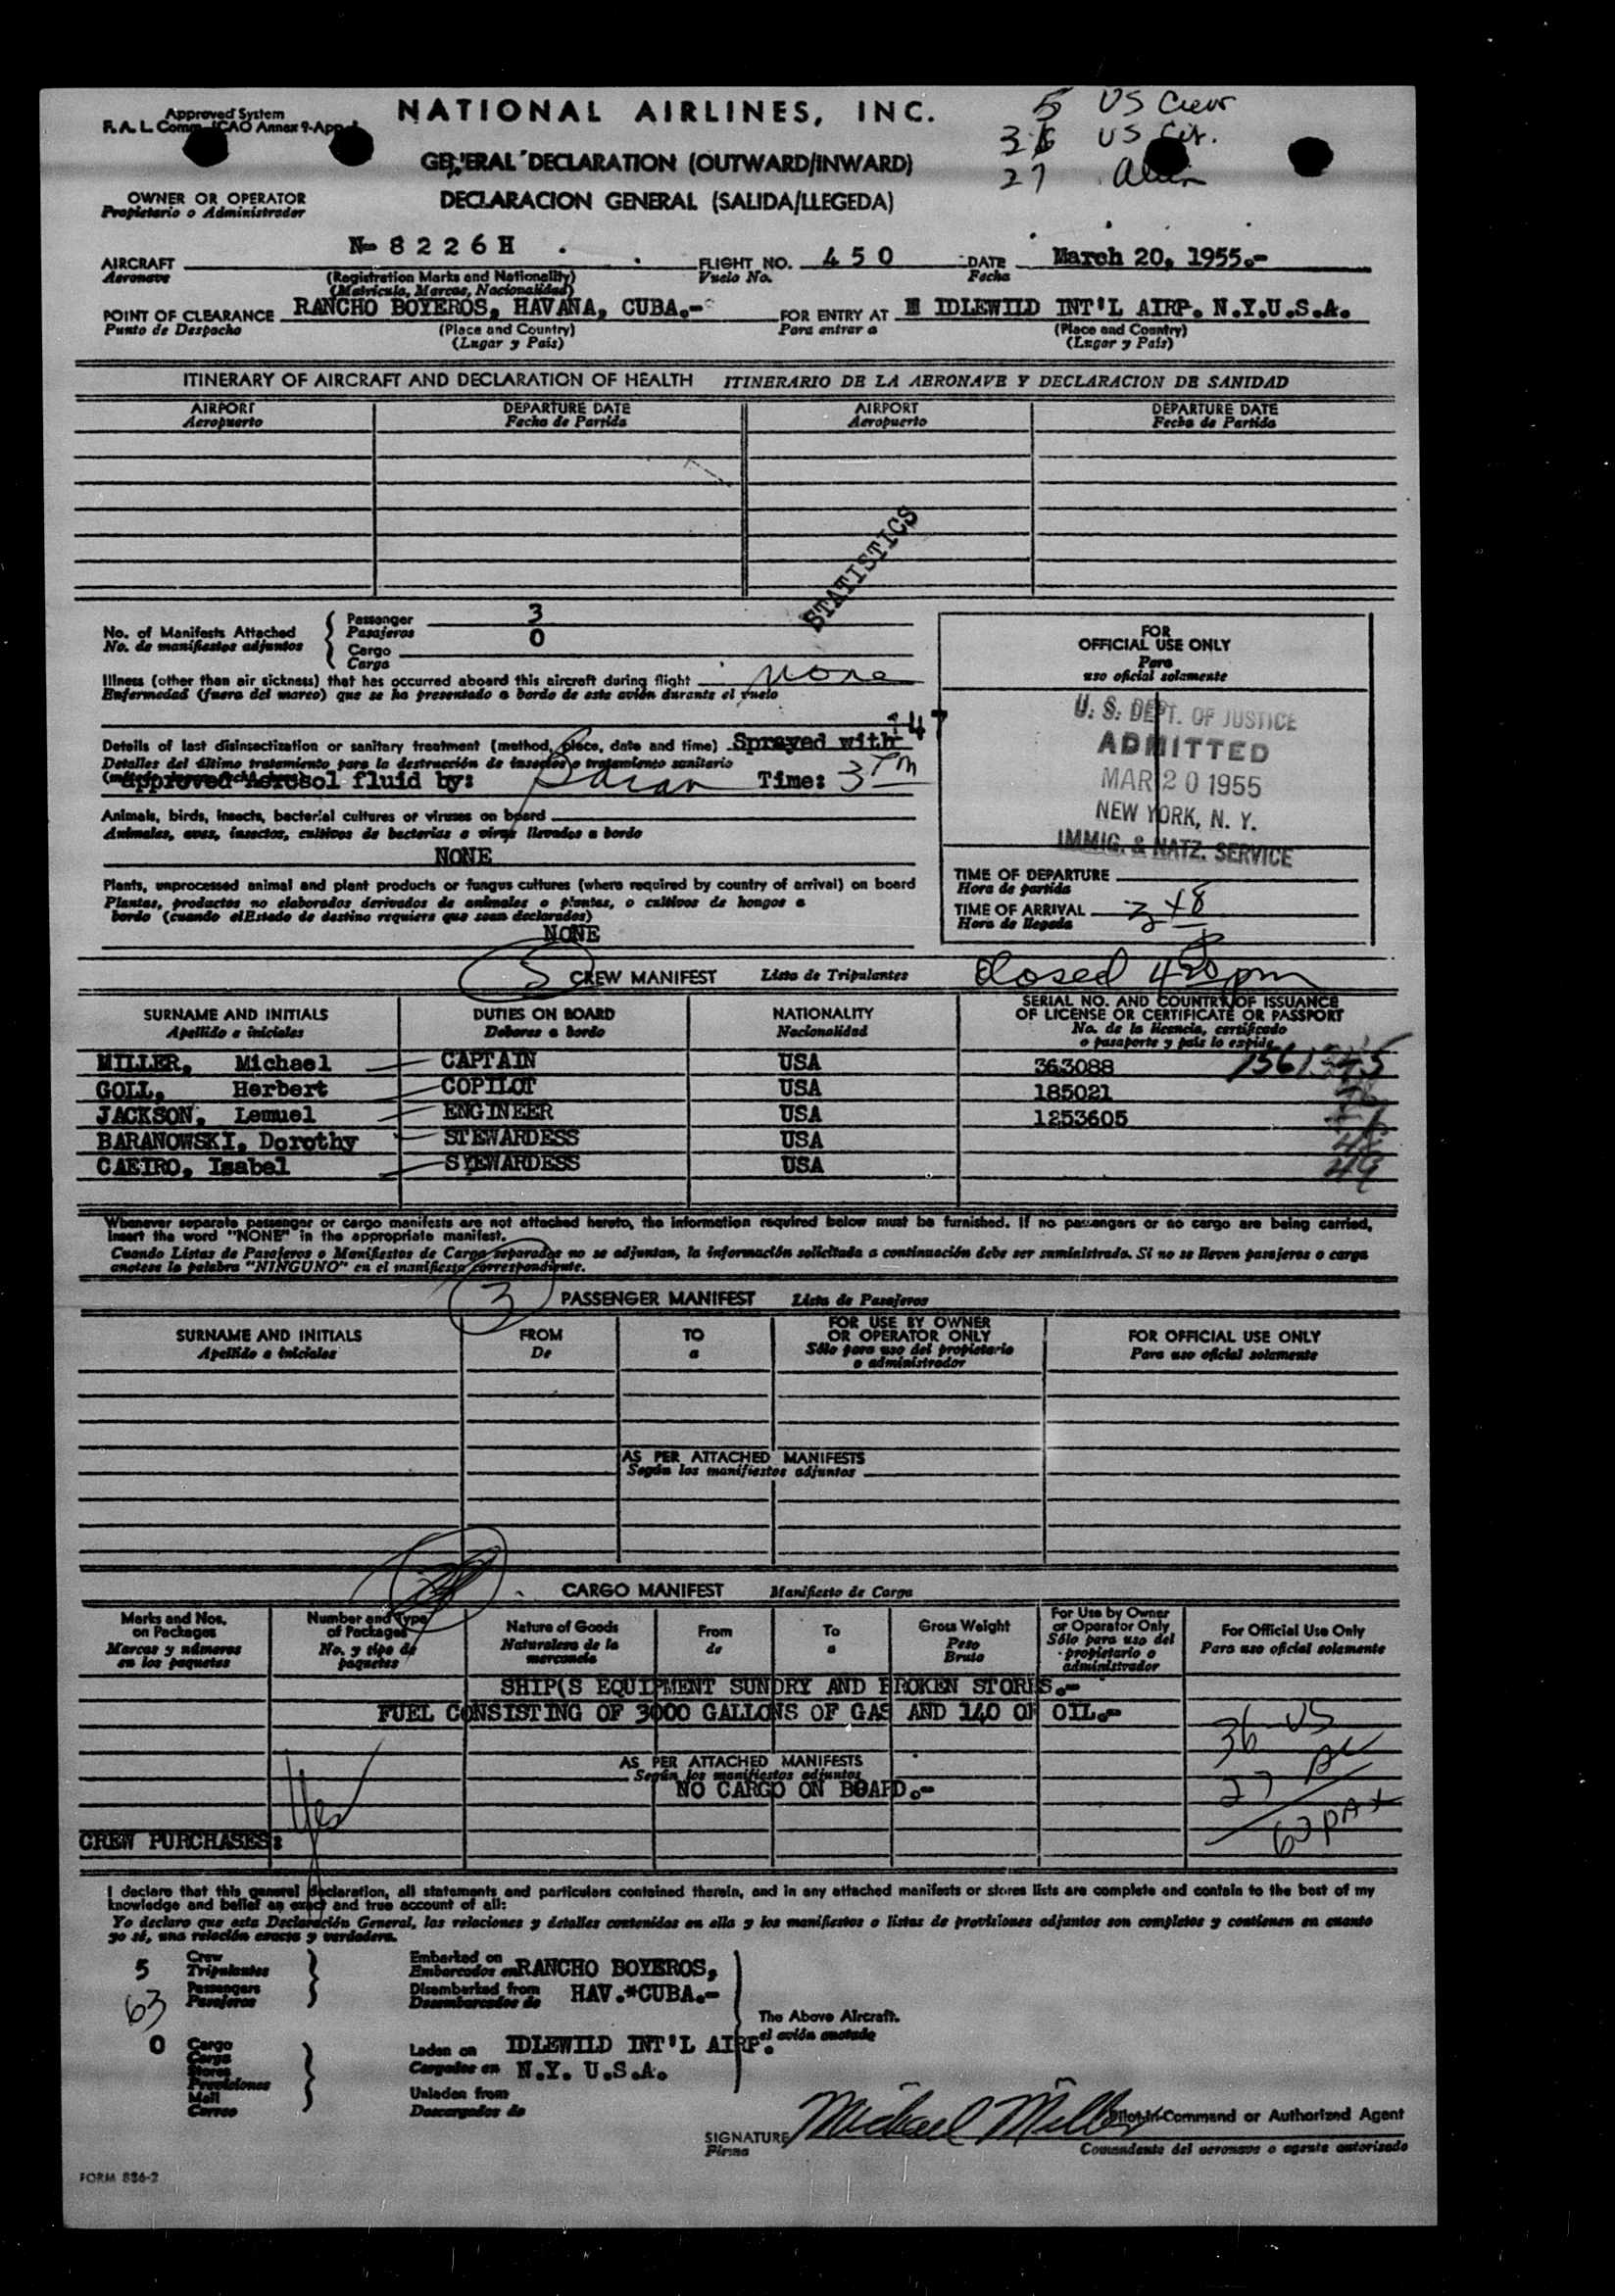 Approved System
F.A.L. Comm. ICAO Annex 9-App.1
NATIONAL AIRLINES, INC.
5 US Crew
36 US Cit.
27 Alien
GENERAL DECLARATION (OUTWARD/INWARD)
OWNER OR OPERATOR
Propietario o Administrador
DECLARACION GENERAL (SALIDA/LLEGEDA)
AIRCRAFT N- 8 2 2 6 H FLIGHT NO. 4 5 0 DATE March 20, 1955.-
Aeronave (Registration Marks and Nationality) Vuelo No. Fecha
(Matricula, Marcas, Nacionalidad)
POINT OF CLEARANCE RANCHO BOYEROS, HAVANA, CUBA.- FOR ENTRY AT IDLEWILD INT'L AIRP. N.Y.U.S.A.
Punto de Despacho (Place and Country) Para entrar a (Place and Country)
(Lugar y Pais) (Lugar y Pais)
ITINERARY OF AIRCRAFT AND DECLARATION OF HEALTH ITINERARIO DE LA AERONAVE Y DECLARACION DE SANIDAD
AIRPORT DEPARTURE DATE AIRPORT DEPARTURE DATE
Aeropuerto Fecha de Partida Aeropuerto Fecha de Partida
STATISTICS
No. of Manifests Attached
No. de manifiestos adjuntos
Passenger 3
Pasajeros
Cargo 0
Carga
Illness (other than air sickness) that has occurred aboard this aircraft during flight None
Enfermedad (fuera del mareo) que se ha presentado a bordo de este avión durante el vuelo
Details of last disinsectization or sanitary treatment (method, place, date and time) Sprayed with
Detalles del último tratamiento para la destrucción de insectos o tratamiento sanitario
approved Aerosol fluid by: Time: 3 PM
Animals, birds, insects, bacterial cultures or viruses on board
Animales, aves, insectos, cultivos de bacterias o virus llevados a bordo
NONE
Plants, unprocessed animal and plant products or fungus cultures (where required by country of arrival) on board
Plantas, productos no elaborados derivados de animales o plantas, o cultivos de hongos a
bordo (cuando elEstado de destino requiera que sean declarados)
NONE
FOR
OFFICIAL USE ONLY
Para
uso oficial solamente
U. S. DEPT. OF JUSTICE
ADMITTED
MAR 20 1955
NEW YORK, N. Y.
IMMIG. & NATZ. SERVICE
TIME OF DEPARTURE
Hora de partida
TIME OF ARRIVAL 3 48
Hora de llegada
5 CREW MANIFEST Lista de Tripulantes Closed 4 20 pm
SURNAME AND INITIALS DUTIES ON BOARD NATIONALITY SERIAL NO. AND COUNTRY OF ISSUANCE
OF LICENSE OR CERTIFICATE OR PASSPORT
Apellido e iniciales Deberes a bordo Nacionalidad No. de la licencia, certificado
o pasaporte y pais lo expide
MILLER, Michael CAPTAIN USA 363088
GOLL, Herbert COPILOT USA 185021
JACKSON, Lemuel ENGINEER USA 1253605
BARANOWSKI, Dorothy STEWARDESS USA 48
CAEIRO, Isabel SYEWARDESS USA 49
Whenever separate passenger or cargo manifests are not attached hereto, the information required below must be furnished. If no passengers or no cargo are being carried,
insert the word "NONE" in the appropriate manifest.
Cuando Listas de Pasajeros o Manifiestos de Carga separados no se adjuntan, la información solicitada a continuación debe ser suministrada. Si no se lleven pasajeros o carga
anotese la palabra "NINGUNO" en el manifiesto correspondiente.
3 PASSENGER MANIFEST Lista de Pasajeros
SURNAME AND INITIALS FROM TO FOR USE BY OWNER
OR OPERATOR ONLY FOR OFFICIAL USE ONLY
Apellido e iniciales De a Sólo para uso del propietario
o administrador Para uso oficial solamente
AS PER ATTACHED MANIFESTS
Según los manifiestos adjuntos
CARGO MANIFEST Manifiesto de Carga
Marks and Nos.
on Packages
Marcas y números
en los paquetes
Number and Type
of Packages
No. y tipo de
paquetes
Nature of Goods
Naturaleza de la
mercancia
From
de
To
a
Gross Weight
Peso
Bruto
For Use by Owner
or Operator Only
Sólo para uso del
propietario o
administrador
For Official Use Only
Para uso oficial solamente
SHIP(S EQUIPMENT SUNDRY AND BROKEN STORES.-
FUEL CONSISTING OF 3000 GALLONS OF GAS AND 140 OF OIL.-
36 US
AS PER ATTACHED MANIFESTS
Según los manifiestos adjuntos
27 AL
NO CARGO ON BOARD.-
63 PAX
CREW PURCHASES:
I declare that this general declaration, all statements and particulars contained therein, and in any attached manifests or stores lists are complete and contain to the best of my
knowledge and belief an exact and true account of all:
Yo declaro que esta Declaración General, las relaciones y detalles contenidos en ella y los manifiestos o listas de provisiones adjuntos son completos y contienen en cuanto
yo sé, una relación exacta y verdadera.
5 Crew
Tripulantes
63 Passengers
Pasajeros
Embarked on
Embarcados en RANCHO BOYEROS,
Disembarked from HAV.*CUBA.-
Desembarcados de
The Above Aircraft.
el avión anotado
0 Cargo
Carga
Stores
Provisiones
Mail
Correo
Laden on IDLEWILD INT'L AIRP.
Cargados en N.Y. U.S.A.
Unladen from
Descargados de
SIGNATURE Michael Miller Pilot-in-Command or Authorized Agent
Firma Comandante del aeronave o agente autorizado
FORM 836-2